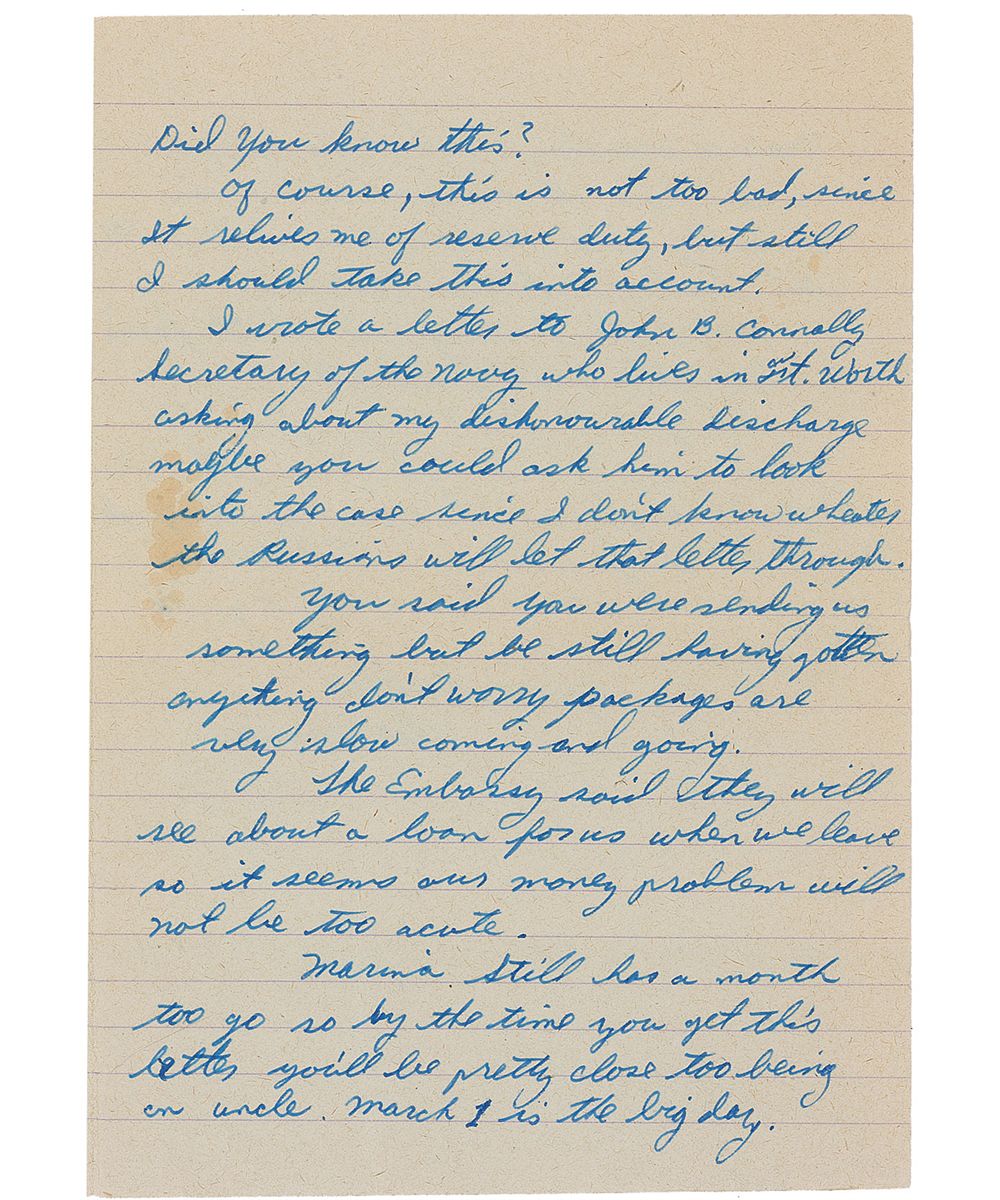 Did You know this?
Of course, this is not too bad, since
It relives me of reserve duty, but still
I should take this into account.
I wrote a letter to John B. Connally
Secretary of the Navy who lives in Ft. Worth
asking about my dishonourable discharge
maybe you could ask him to look
into the case since I don't know wheater
the Russians will let that letter through.
You said you were sending us
something but be still having gotten
anything don't worry packages are
very slow coming and going.
The Embassy said they will
see about a loan for us when we leave
so it seems our money problem will
not be too acute.
Marina still has a month
too go so by the time you get this
letter you'll be pretty close too being
an uncle. March 1 is the big day.